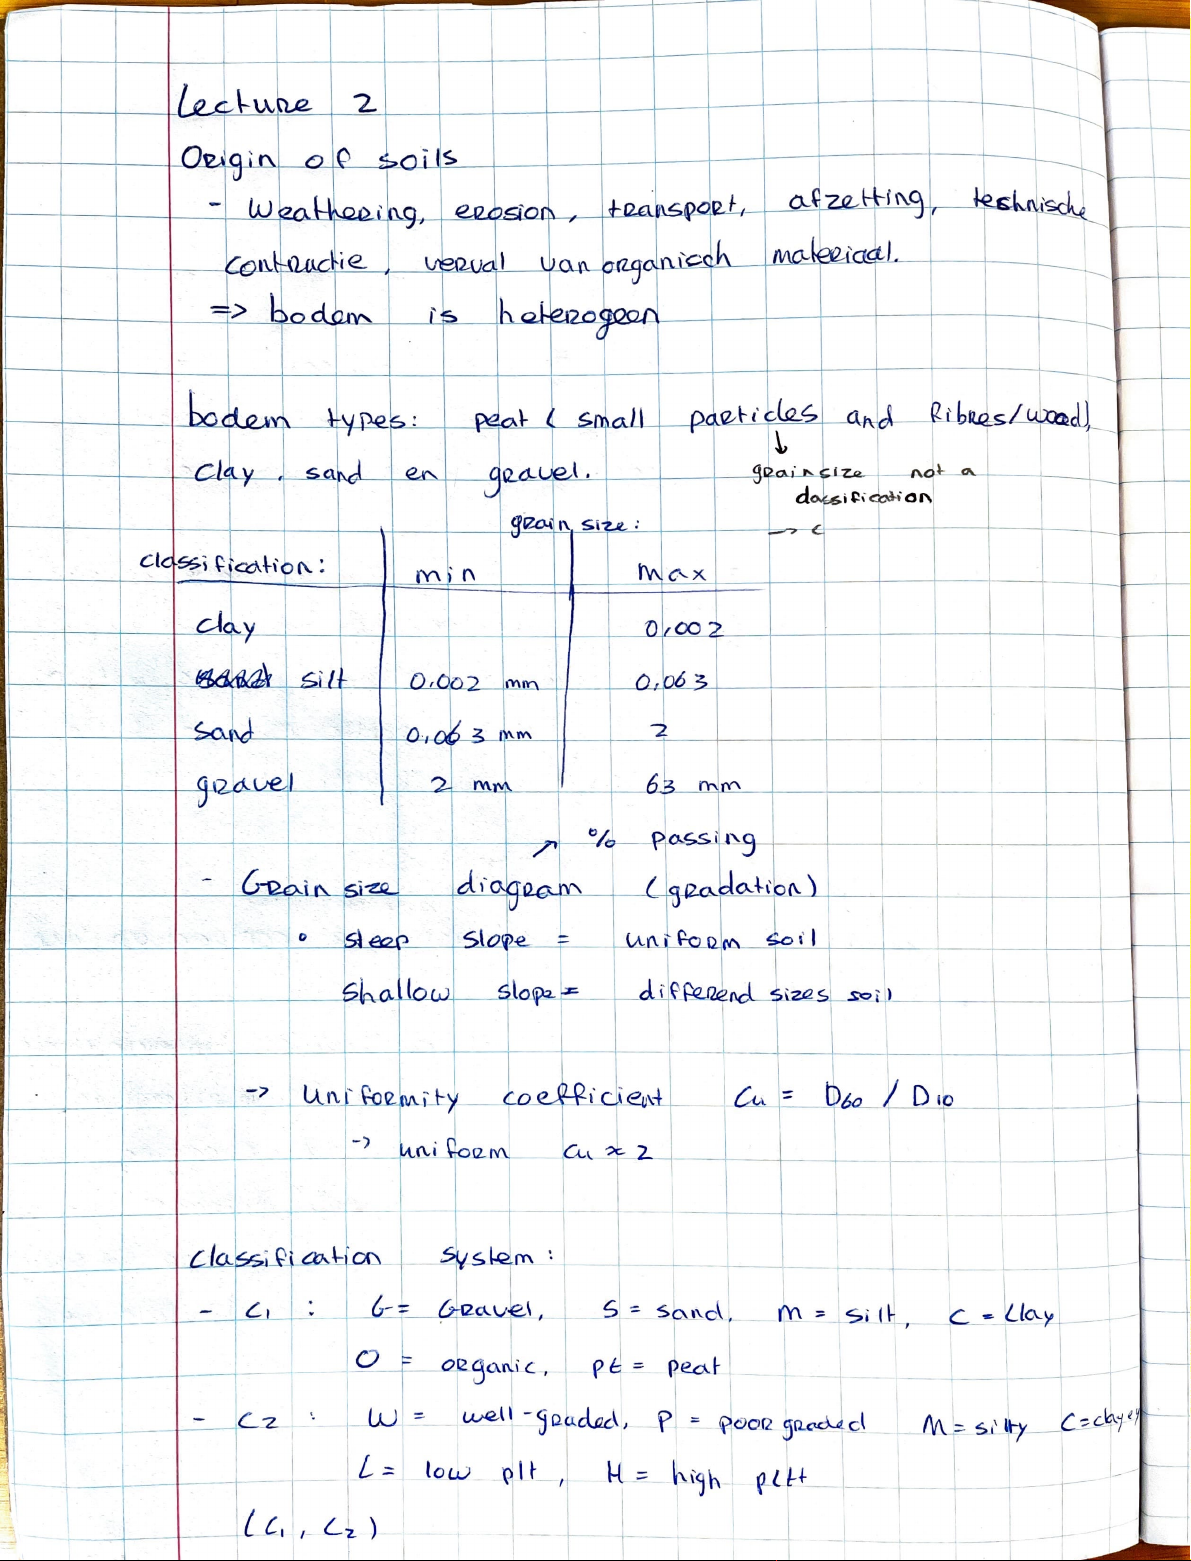 Lecture 2
Origin of soils
- Weathering, erosion, transport, afzetting, technische
contructie, verval van organisch materiaal.
=> bodem is heterogeen
bodem types: peat ( small particles and fibres/wood),
clay, sand en gravel.
↓
grainsize not a
classification
→ c
grain size:
classification: min max
clay 0,002
silt 0.002 mm 0,063
sand 0,063 mm 2
gravel 2 mm 63 mm
↗ % passing
- Grain size diagram (gradation)
• steep slope = uniform soil
shallow slope = differend sizes soil
-> Uniformity coefficient Cu = D60 / D10
-> uniform Cu ≈ 2
classification system:
- C1 : G = Gravel, S = sand, M = silt, C = Clay
O = organic, pt = peat
- C2 : W = well-graded, P = poor graded M = silty C = clayey
L = low plt, H = high pltt
(C1, C2)